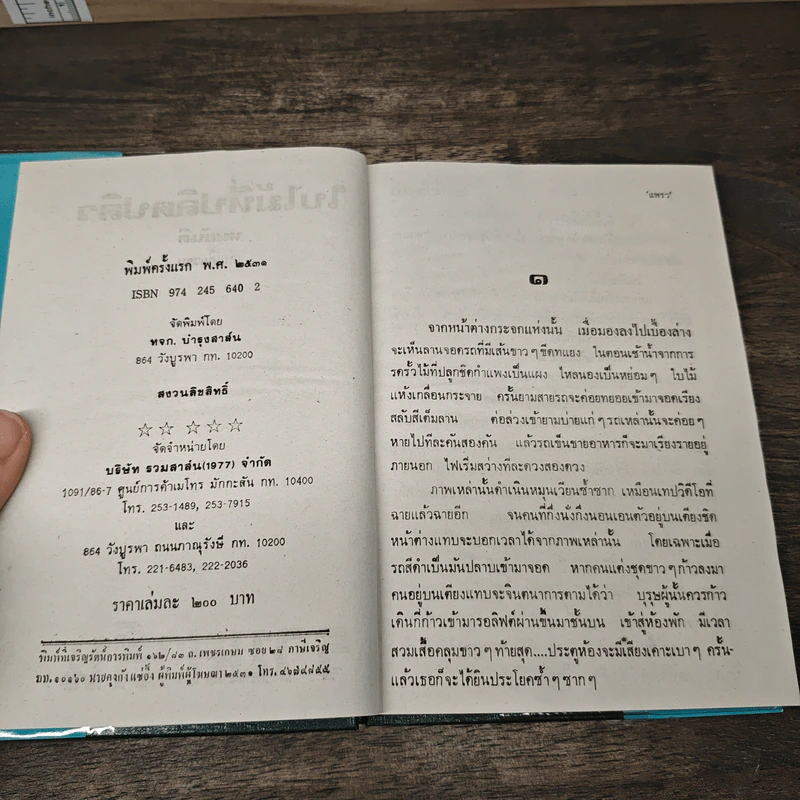 พิมพ์ครั้งแรก พ.ศ. ๒๕๓๑
ISBN 974 245 640 2
จัดพิมพ์โดย
หจก. บำรุงสาส์น
864 วังบูรพา กท. 10200
สงวนลิขสิทธิ์
จัดจำหน่ายโดย
บริษัท รวมสาส์น(1977) จำกัด
1091/86-7 ศูนย์การค้าเมโทร มักกะสัน กท. 10400
โทร. 253-1489, 253-7915
และ
864 วังบูรพา ถนนภาณุรังษี กท. 10200
โทร. 221-6483, 222-2036
ราคาเล่มละ ๒๐๐ บาท
พิมพ์ที่เจริญรัตน์การพิมพ์ ๑๖๒/๘๓ ถ. เพชรเกษม ซอย ๒๘ ภาษีเจริญ
กท. ๑๐๑๖๐ นายคุงกัง แซ่อึ้ง ผู้พิมพ์ผู้โฆษณา ๒๕๓๑ โทร. ๔๖๗๔๘๕๕
"แพรว"
๑
จากหน้าต่างกระจกแห่งนั้น เมื่อมองลงไปเบื้องล่าง
จะเห็นลานจอดรถที่มีเส้นขาว ๆ ขีดทแยง ในตอนเช้าน้ำจากการ
รดรั้วไม้ที่ปลูกชิดกำแพงเป็นแผง ไหลนองเป็นหย่อม ๆ ใบไม้
แห้งเกลื่อนกระจาย ครั้นยามสายรถจะค่อยทยอยเข้ามาจอดเรียง
สลับสีเต็มลาน ต่อล่วงเข้ายามบ่ายแก่ ๆ รถเหล่านั้นจะค่อย ๆ
หายไปทีละคันสองคัน แล้วรถเข็นขายอาหารก็จะมาเรียงรายอยู่
ภายนอก ไฟเริ่มสว่างทีละดวงสองดวง
ภาพเหล่านั้นดำเนินหมุนเวียนซ้ำซาก เหมือนเทปวิดีโอที่
ฉายแล้วฉายอีก จนคนที่กึ่งนั่งกึ่งนอนเอนตัวอยู่บนเตียงชิด
หน้าต่างแทบจะบอกเวลาได้จากภาพเหล่านั้น โดยเฉพาะเมื่อ
รถสีดำเป็นมันปลาบเข้ามาจอด หากคนแต่งชุดขาว ๆ ก้าวลงมา
คนอยู่บนเตียงแทบจะจินตนาการตามได้ว่า บุรุษผู้นั้นควรก้าว
เดินกี่ก้าวเข้ามารอลิฟต์ผ่านขึ้นมาชั้นบน เข้าสู่ห้องพัก มีเวลา
สวมเสื้อคลุมขาว ๆ ท้ายสุด....ประตูห้องจะมีเสียงเคาะเบา ๆ ครั้น-
แล้วเธอก็จะได้ยินประโยคซ้ำ ๆ ซาก ๆ